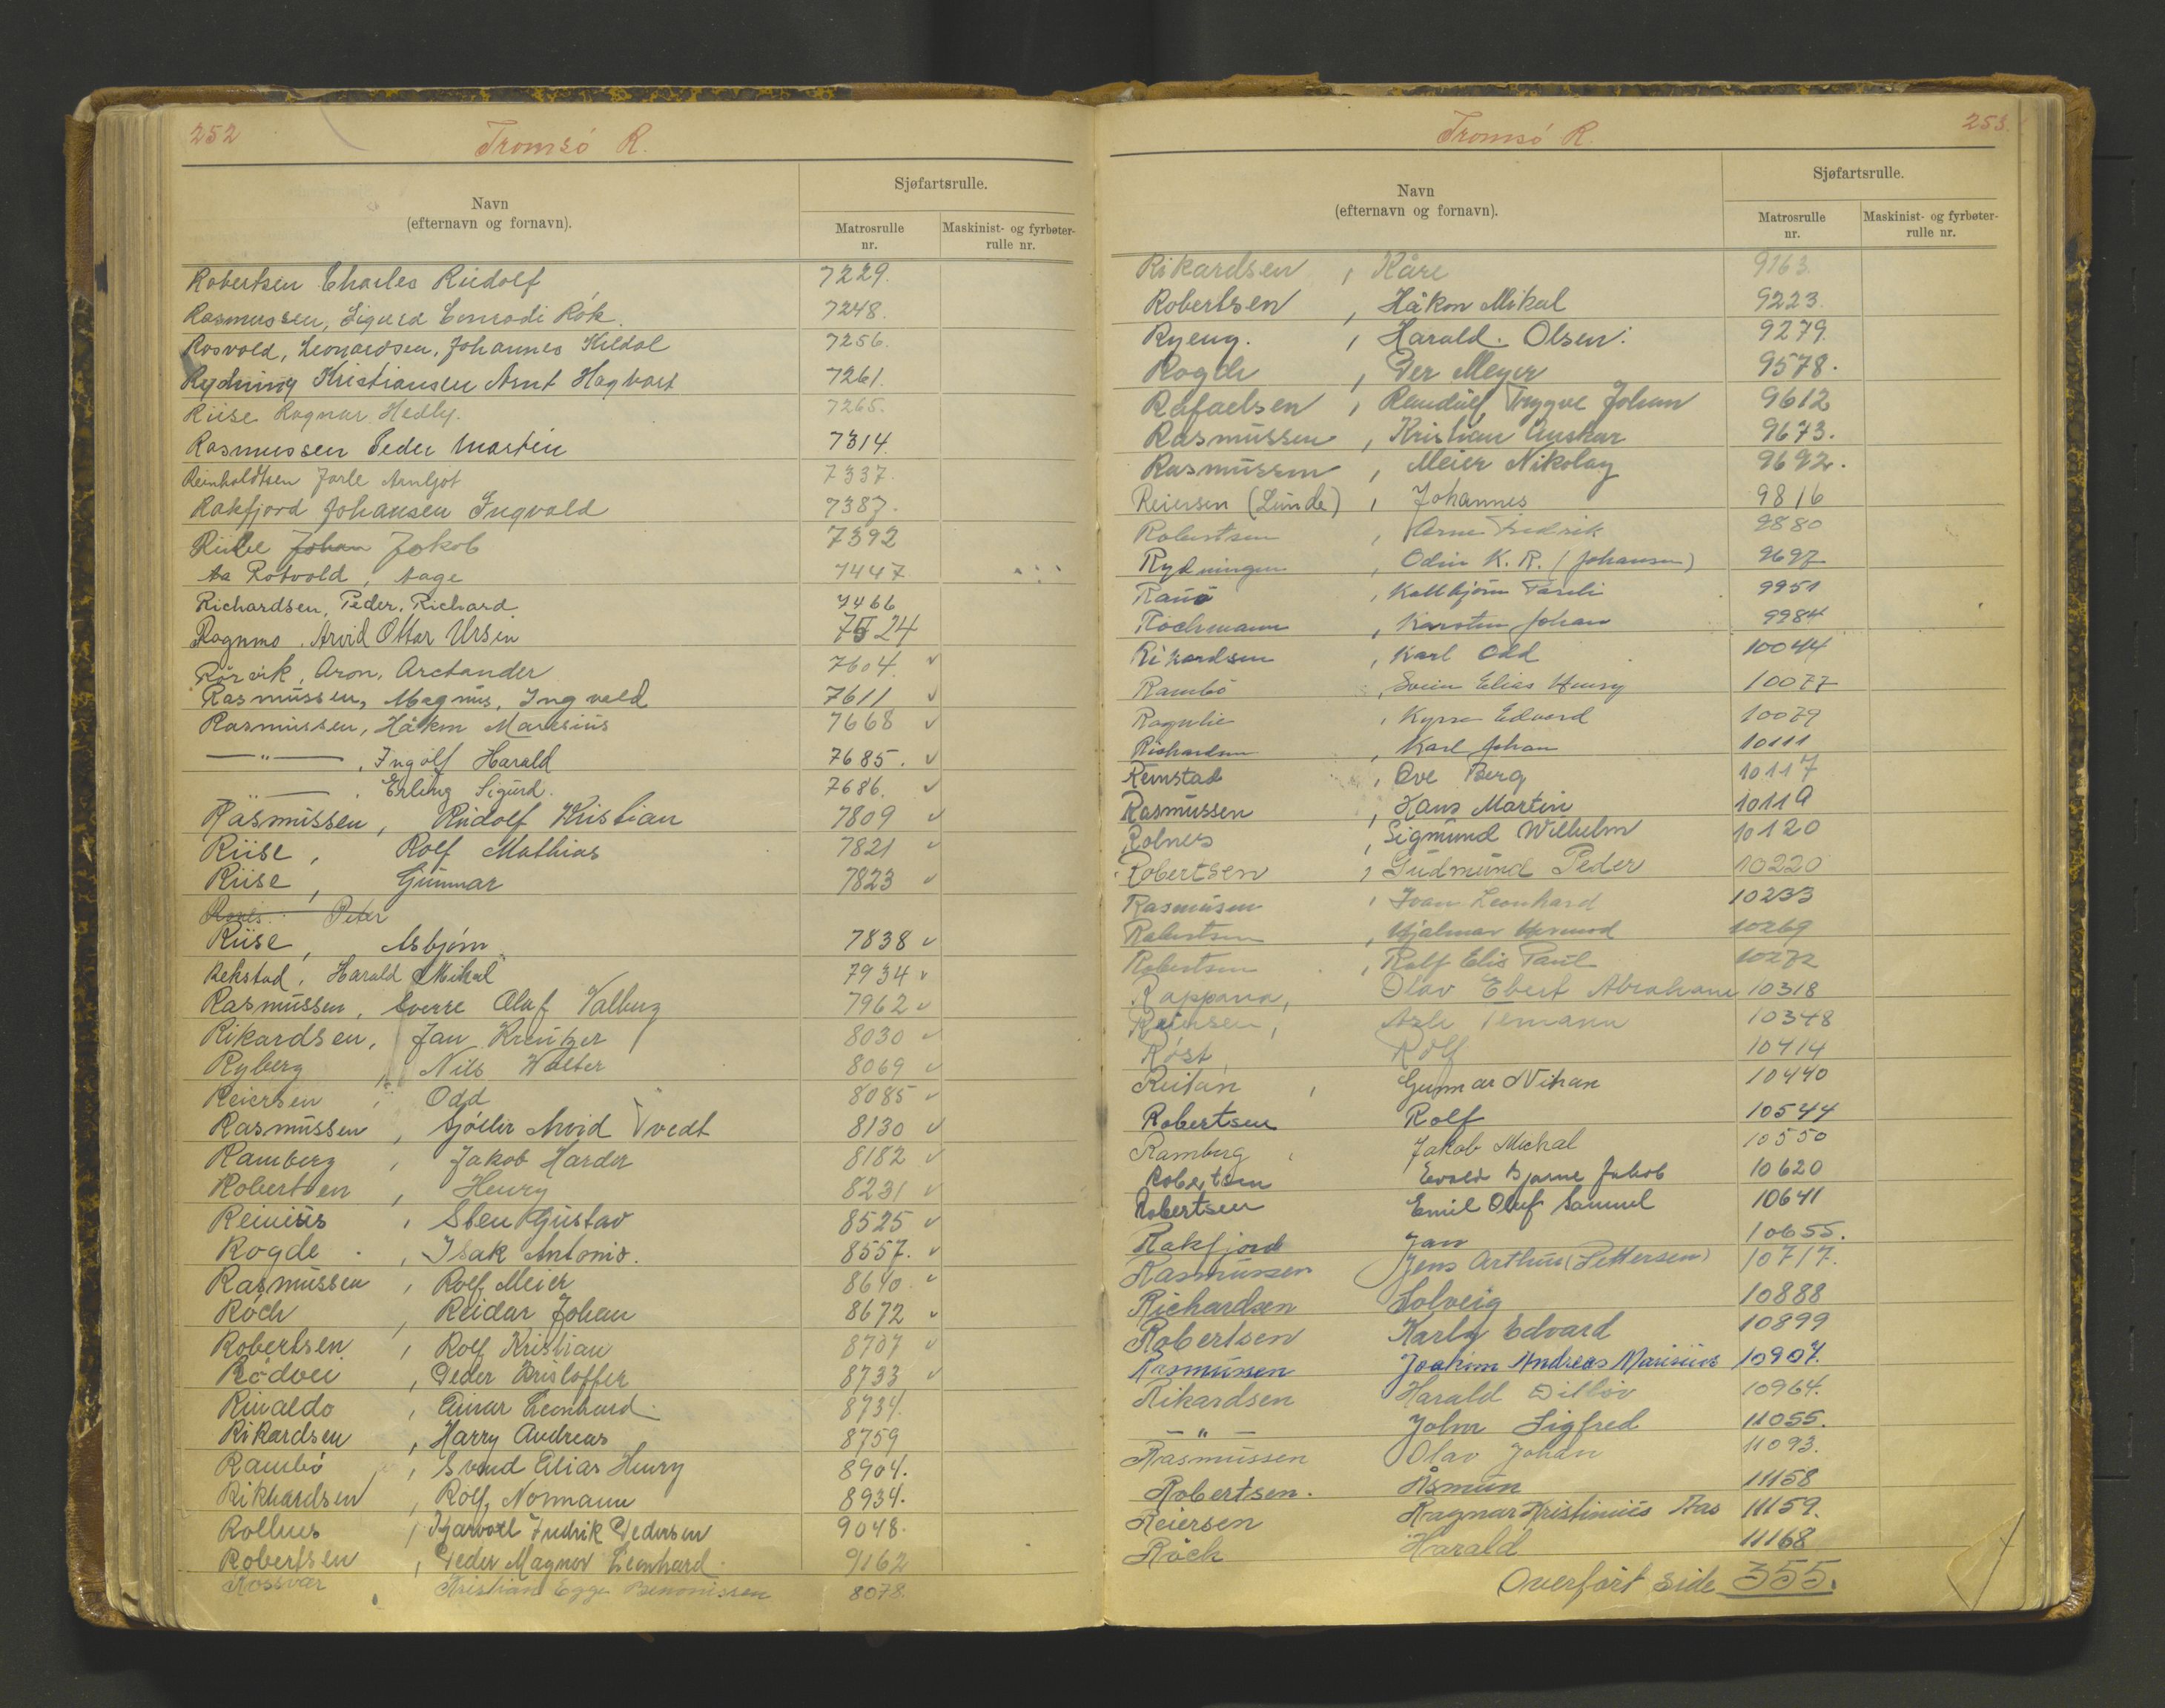 252
Tromsö R.
Navn
(efternavn og fornavn).
Sjøfartsrulle.
Matrosrulle nr.
Maskinist- og fyrbøter-rulle nr.
Robertsen Charles Rudolf 7229.
Rasmussen, Sigurd Conradi Rök. 7248.
Rosvold, Leonardsen, Johannes Kildal 7256.
Rydning Kristiansen Arnt Hagbart 7261.
Riise Ragnar Hedly. 7265.
Rasmussen Peder Martin 7314.
Reinholdtsen Jarle Arnljot 7337.
Rakfjord Johansen Ingvald 7387.
Johan Jakob 7392
Rotvold, Aage 7447
Richardsen, Peder, Richard 7466
Rognmo, Arvid Ottar Ursin 7524
Rörvik, Aron, Arctander 7604. ✓
Rasmussen, Magnus, Ingvald 7611 ✓
Rasmussen, Håkon Marésius 7668 ✓
—"—, Ingolf Harald 7685. ✓
—"—, Erling Sigurd. 7686. ✓
Rasmussen, Rudolf Kristian 7809 ✓
Riise, Rolf Mathias 7821 ✓
Riise, Gunnar 7823 ✓
Peter
Riise, Asbjørn 7838 ✓
Rekstad, Harald Mikal 7934 ✓
Rasmussen, Sverre Oluf Valberg 7962 ✓
Rikardsen, Jan Kreutzer 8030 ✓
Ryberg, Nils Walter 8069 ✓
Reiersen, Odd 8085 ✓
Rasmussen, Arvid Tvedt 8130 ✓
Ramberg, Jakob Harder 8182 ✓
Robertsen, Henry 8231 ✓
Reinius, Sten Gustav 8525 ✓
Rogde, Isak Antonio. 8557. ✓
Rasmussen, Rolf Meier 8640 ✓
Röch, Reidar Johan 8672 ✓
Robertsen, Rolf Kristian 8707 ✓
Rödvei, Peder Kristoffer 8733 ✓
Rinaldo, Einar Leonhard. 8734.
Rikardsen, Harry Andreas 8759
Rambö, Svend Elias Henry 8904.
Rikhardsen, Rolf Normann 8934.
Rollnes, Fredrik Pedersen 9048.
Robertsen, Peder Magnor Leonhard. 9162
Rossvær Kristian Egge Benonissen 8078.
253.
Tromsö R.
Navn
(efternavn og fornavn).
Sjøfartsrulle.
Matrosrulle nr.
Maskinist- og fyrbøter-rulle nr.
Rikardsen, Kåre 9163.
Robertsen, Håkon Mikal 9223.
Ryeng., Harald. Olsen. 9279.
Rogde, Per Meyer 9578.
Rafaelsen, Randulf Trygve Johan 9612
Rasmussen, Kristian Anskar 9673.
Rasmussen, Meier Nikolay 9692.
Reiersen (Lunde), Johannes 9816
Robertsen, Arne Fredrik 9880
Rydningen, Odin K. R. (Johansen) 9697
Ranö, Kollbjörn Pauli 9951
Röchmann, Karsten Johan 9984
Rikardsen, Karl Odd 10044
Rambö, Svein Elias Henry 10077
Rognlie, Edvard 10079
Richardsen, Karl Johan 10111
Reinstad, Ove Berg 10117
Rasmussen, Hans Martin 10119
Rolnes, Sigmund Wilhelm 10120
Robertsen, Gudmund Peder 10220
Rasmusen, Ivan Leonhard 10233
Robertsen, Hjalmar Hermod 10269
Robertsen, Rolf Elis Paul 10272
Rappana, Olav Ebert Abraham 10318
Reiersen, Temann 10348
Røst, Rolf 10414
Reitan, Gunnar Nikan 10440
Robertsen Rolf 10544
Ramberg, Jakob Mickal 10550
Robertsen Evald Bjarne Jakob 10620
Robertsen Emil Oluf Samuel 10641
Rakfjord Jan 10655.
Rasmussen Jens Arthur (Pettersen) 10717.
Richardsen Solveig 10888
Robertsen Karly Edvard 10899
Rasmussen Joakim Andreas Marisius 10907.
Rikardsen Harald Ditlöv 10964.
—"— John Sigfred 11055.
Rasmussen Olav Johan 11093.
Robertsen. Åsmun 11158
Reiersen Ragnar Kristinius Aas 11159.
Röck Harald 11168
Overfört side 355.